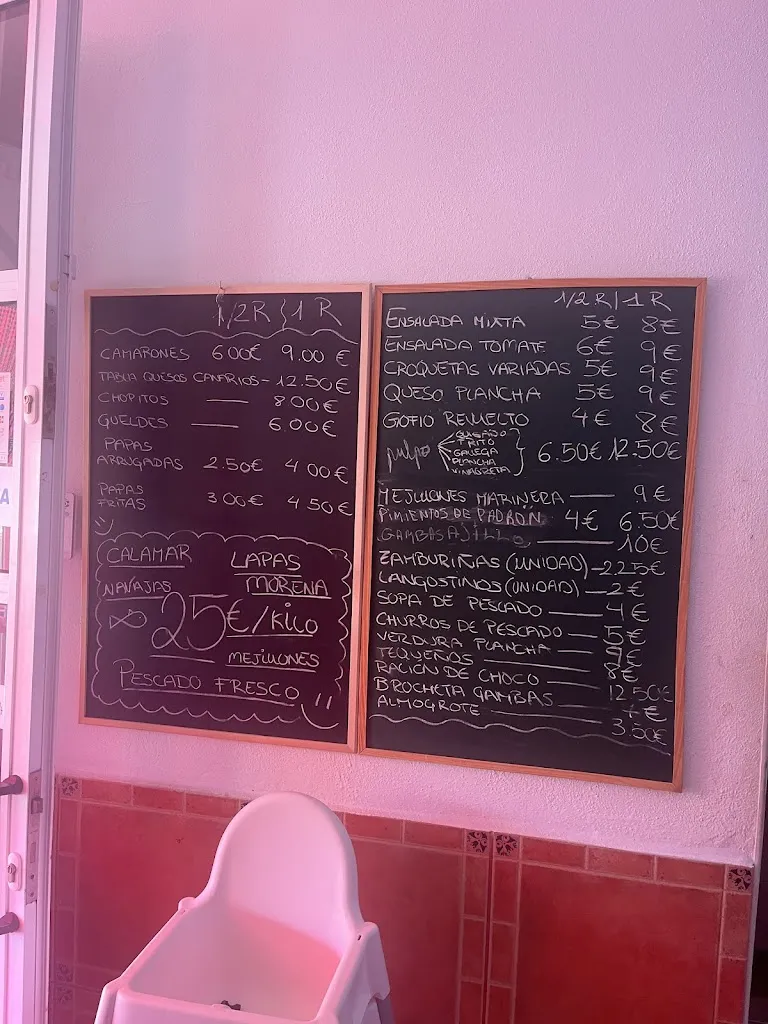 1/2 R 1 R
CAMARONES 6 00€ 9.00 €
TABLA QUESOS CANARIOS - 12.50€
CHOPITOS — 8 00€
GUELDES — 6.00€
PAPAS
ARRUGADAS 2.50€ 4 00€
PAPAS
FRITAS 3 00€ 4 50€
CALAMAR LAPAS
NAVAJAS MORENA
25€/KILO
MEJILLONES
PESCADO FRESCO
1/2 R | 1 R
ENSALADA MIXTA 5€ 8€
ENSALADA TOMATE 6€ 9€
CROQUETAS VARIADAS 5€ 9€
QUESO PLANCHA 5€ 9€
GOFIO REVUELTO 4€ 8€
pulpo
FRITO
GALLEGA
PLANCHA
VINAGRETA
6.50€ 12.50€
MEJILLONES MARINERA — 9€
PIMIENTOS DE PADRÓN 4€ 6.50€
GAMBAS AJILLO — 10€
ZAMBURIÑAS (UNIDAD) — 2 25€
LANGOSTINOS (UNIDAD) — 2€
SOPA DE PESCADO — 4€
CHURROS DE PESCADO — 5€
VERDURA PLANCHA —
TEQUEÑOS — 8€
RACIÓN DE CHOCO — 12.50€
BROCHETA GAMBAS —
ALMOGROTE — 3.50€